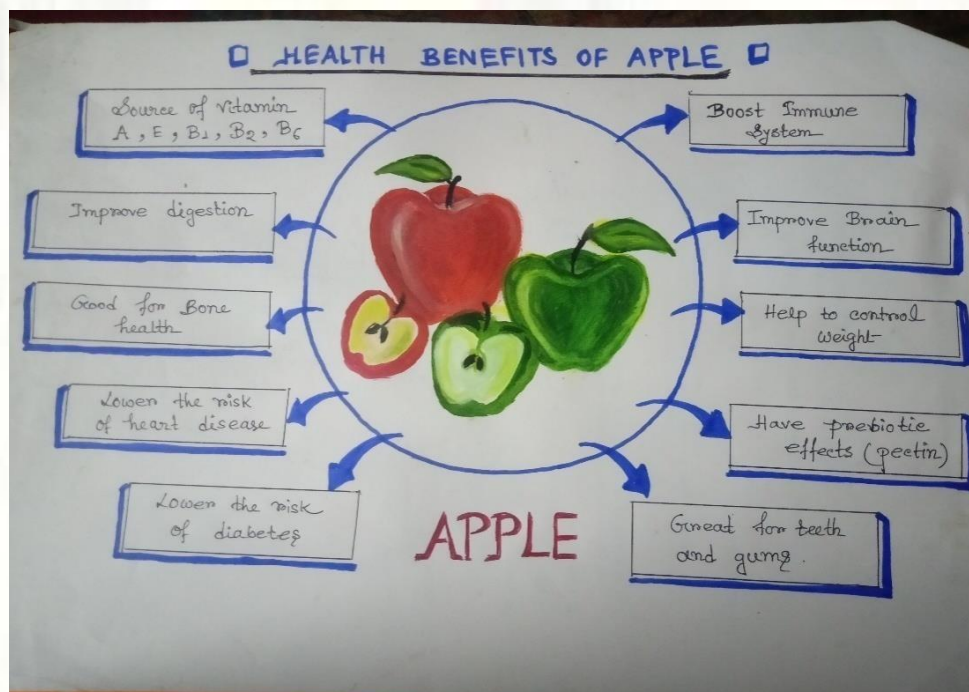 HEALTH BENEFITS OF APPLE
Source of vitamin
A, E, B1, B2, B6
Improve digestion
Good for Bone
health
Lower the risk
of heart disease
Lower the risk
of diabetes
Boost Immune
System
Improve Brain
function
Help to control
weight
Have prebiotic
effects (pectin)
Great for teeth
and gums.
APPLE